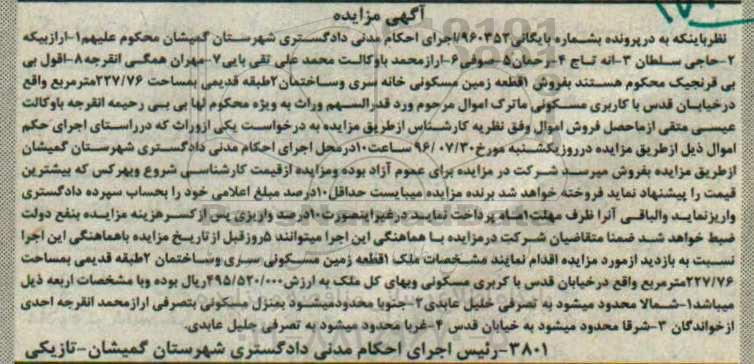 آگهی مزایده
نظرباینکه به درپرونده بشماره بایگانی۹۶۰۳۵۲/اجرای احکام مدنی دادگستری شهرستان گمیشان محکوم علیهم۱-ارازبیکه
۲-حاجی سلطان ۳-انه تاج ۴-رحمان۵-صوفی۶-ارازمحمد باوکالت محمد علی تقی بابی۷-مهران همگی انقرجه۸-اقول بی
بی قرنجیک محکوم هستند بفروش ۱قطعه زمین مسکونی خانه سری وساختمان۲طبقه قدیمی بمساحت ۲۲۷/۷۶مترمربع واقع
درخیابان قدس با کاربری مسکونی ماترک اموال مرحوم ورد قدرالسهم وراث به ویژه محکوم لها بی بی رحیمه انقرجه باوکالت
عیسی متقی ازماحصل فروش اموال وفق نظریه کارشناس ازطریق مزایده به درخواست یکی ازوراث که درراستای اجرای حکم
اموال ذیل ازطریق مزایده درروزیکشنبه مورخ۹۶/۰۷/۳۰ ساعت۱۰درمحل اجرای احکام مدنی دادگستری شهرستان گمیشان
ازطریق مزایده بفروش میرسد شرکت در مزایده برای عموم آزاد بوده ومزایده ازقیمت کارشناسی شروع وبهرکس که بیشترین
قیمت را پیشنهاد نماید فروخته خواهد شد برنده مزایده میبایست حداقل۱۰درصد مبلغ اعلامی خود را بحساب سپرده دادگستری
واریزنماید والباقی آنرا ظرف مهلت۱ماه پرداخت نمایید درغیراینصورت۱۰درصد واریزی پس ازکسرهزینه مزایده بنفع دولت
ضبط خواهد شد ضمنا متقاضیان شرکت درمزایده با هماهنگی این اجرا میتوانند ۵روزقبل ازتاریخ مزایده باهماهنگی این اجرا
نسبت به بازدید ازمورد مزایده اقدام نمایند مشخصات ملک ۱قطعه زمین مسکونی سری وساختمان ۲طبقه قدیمی بمساحت
۲۲۷/۷۶مترمربع واقع درخیابان قدس با کربری مسکونی وبهای کل ملک به ارزش۴۹۵/۵۲۰/۰۰۰ریال بوده وبا مشخصات اربعه ذیل
میباشد۱-شمالا محدود میشود به تصرفی خلیل عابدی۲-جنوبا محدودمیشود بمنزل مسکونی بتصرفی ارازمحمد انقرجه احدی
ازخواندگان ۳-شرقا محدود میشود به خیابان قدس ۴-غربا محدود میشود به تصرفی جلیل عابدی.
۳۸۰۱-رئیس اجرای احکام مدنی دادگستری شهرستان گمیشان-تازیکی